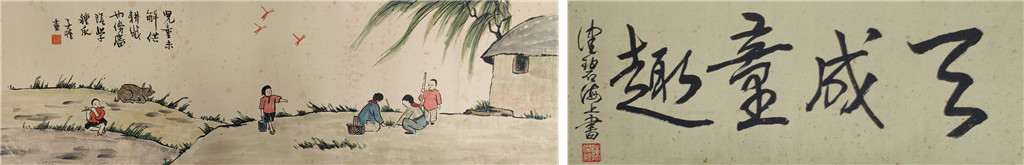 兒童未
解供
耕織
也傍桑
陰學
種瓜
子愷
畫
天成童趣
海上書